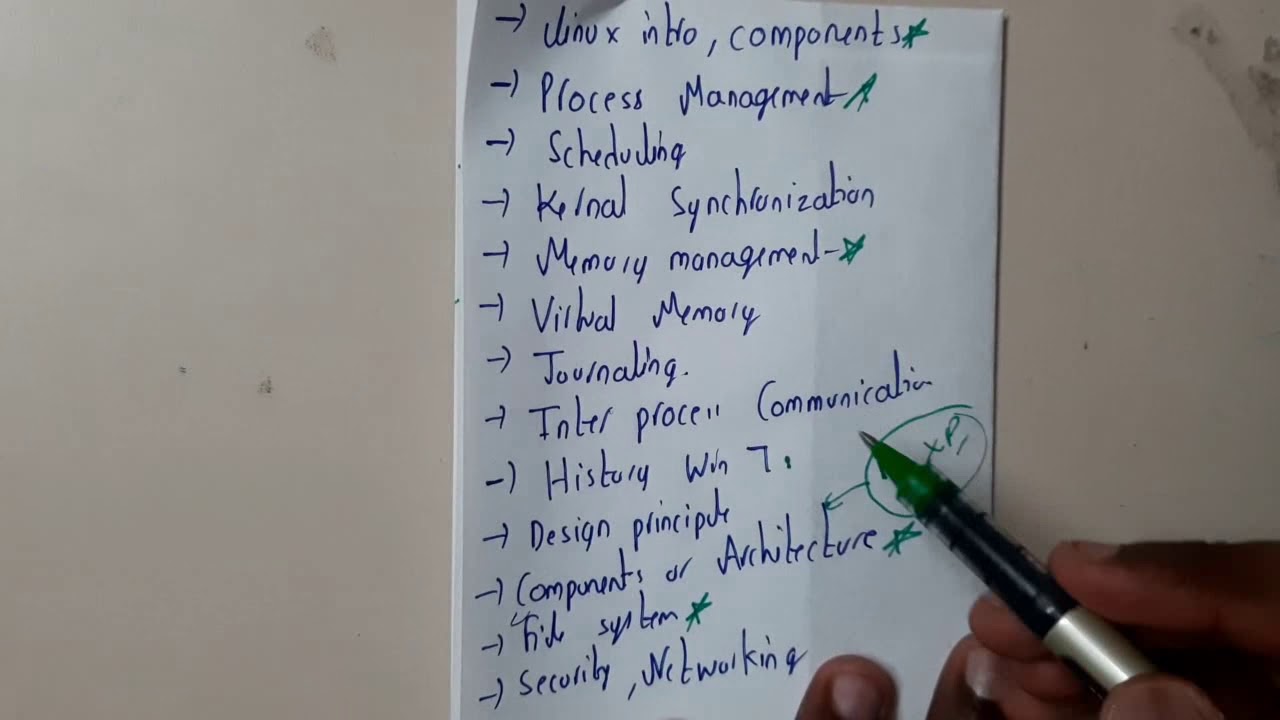 → Linux intro, components★
→ Process Management
→ Scheduling
→ Kernal Synchronization
→ Memory management-★
→ Virtual Memory
→ Journaling.
→ Inter process Communication
→ History Win 7.
XP,
→ Design principle
→ Components or Architecture★
→ File system★
→ Security, Networking